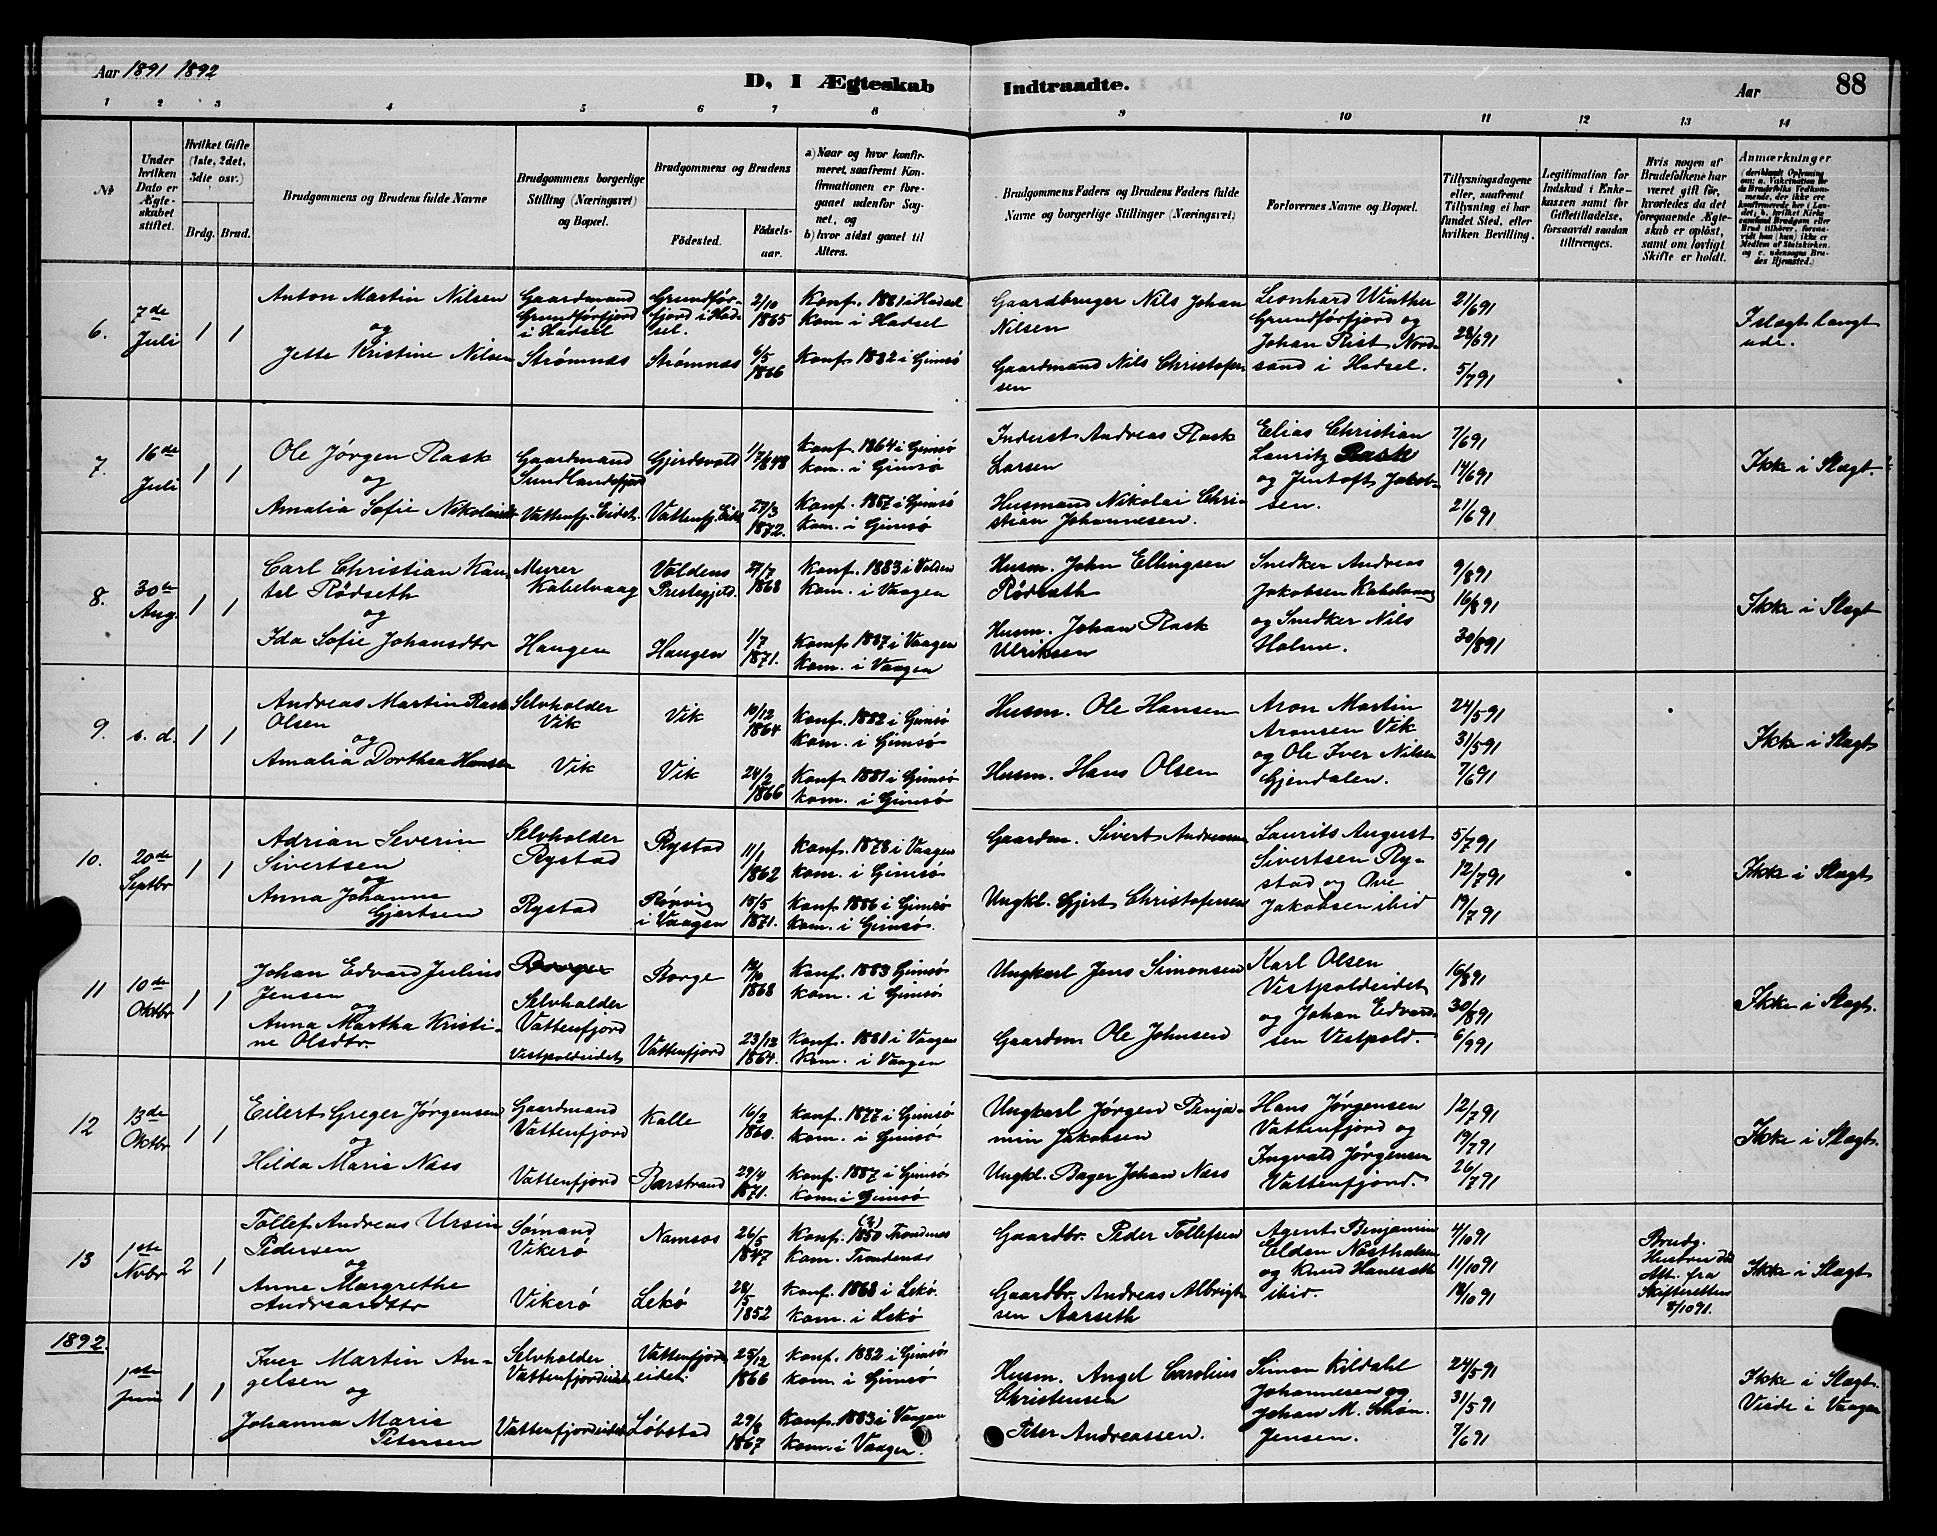 Aar 1891 1892
D. I Ægteskab Indtraadte.
Aar
88
1 2 3 4 5 6 7 8 9 10 11 12 13 14
No
Under hvilken Dato er Ægteskabet stiftet.
Hvilket Gifte (1ste, 2det, 3die osv.)
Brdg. Brud.
Brudgommens og Brudens fulde Navne
Brudgommens borgerlige Stilling (Næringsvei) og Bopæl.
Brudgommens og Brudens
Födested. Födselsaar.
a) Naar og hvor konfirmeret, saafremt Konfirmationen er foregaaet udenfor Sognet, og
b) hvor sidst gaaet til Alters.
Brudgommens Faders og Brudens Faders fulde Navne og borgerlige Stillinger (Næringsvei)
Forlovernes Navne og Bopæl.
Tillysningsdagene eller, saafremt Tillysning ei har fundet Sted, efter hvilken Bevilling.
Legitimation for Indskud i Enkekassen samt for Giftetilladelse, forsaavidt saadan tiltrænges.
Hvis nogen af Brudefolkene har været gift för, hvorledes da det foregaaende Ægteskab er oplöst, samt om lovligt Skifte er holdt.
Anmærkninger
6. 7de Juli 1 1
Anton Martin Nilsen
og
Jette Kristine Nilsen
Gaardmand Grundförfjord i Hadsel
Strømnæs
Grundförfjord i Hadsel.
Strømnæs
2/10 1865
6/5 1866
Konf. 1881 i Hadsel
Kom i Hadsel
Konf. 1882 i Gimsö
Gaardbruger Nils Johan Nilsen
Gaardmand Nils Christofersen
Leonhard Winther
Grundförfjord og
Johan Rist Nordsand i Hadsel.
21/6 91
28/6 91
5/7 91
I slægt langt ude.
7. 16de Juli 1 1
Ole Jørgen Rask
og
Amalia Sofie Nikolaisdtr
Gaardmand Sundlandsfjord
Vattenfj. Eidet.
Gjerdsvold
Vattenfj. Eidet
1/7 1848
27/3 1872.
Konf. 1864 i Gimsö
kom. i Gimsö
Konf. 1887 i Gimsö
Kom. i Gimsö
Inderst Andreas Rask Larsen
Husmand Nikolai Christian Johannesen.
Elias Christian
Lauritz Rask
og Jentoft Jakobsen.
7/6 91
14/6 91
21/6 91
Ikke i Slægt.
8. 30te Aug. 1 1
Carl Christian Kantel Rödseth
og
Ida Sofie Johansdtr
Murer Kabelvaag
Haugen
Voldens Prestegjeld.
Haugen
27/7 1863
1/7 1871.
Konf. 1883 i Volden
Kom. i Vaagen
Konf. 1887 i Vaagen
Kom. i Vaagen
Husm. John Ellingsen Rödseth
Husm. Johan Rask Ulriksen
Snedker Andreas
Jakobsen Kabelvaag
og Snedker Nils
Holme.
9/8 91
16/8 91
30/8 91
Ikke i Slægt
9. s. d. 1 1
Andreas Martin Rask Olsen
og
Amalia Dorthea Hansen
Selvholder Vik
Vik
Vik
Vik
10/12 1864
24/2 1866
Konf. 1882 i Gimsö
kom. i Gimsö
Konf. 1881 i Gimsö
kom. i Gimsö
Husm. Ole Hansen
Husm. Hans Olsen
Aron Martin
Aronsen Vik
og Ole Iver Nilsen
Gjendalen.
24/5 91
31/5 91
7/6 91
Ikke i Slægt
10. 20de Septbr 1 1
Adrian Severin Sivertsen
og
Anna Johanne Gjertsen
Selvholder Rystad
Rystad
Rystad
Rörvig i Vaagen
11/1 1862
18/5 1871.
Konf. 1878 i Vaagen
kom. i Gimsö
Konf. 1886 i Gimsö
kom. i Gimsö.
Gaardm. Sivert Andreasen
Ungkl. Gjert Christofersen
Laurits August
Sivertsen Rystad og Ove
Jakobsen ibid
5/7 91
12/7 91
19/7 91
Ikke i Slægt
11 10de Oktbr 1 1
Johan Edvard Julius Jensen
og
Anna Martha Kristine Olsdtr.
Selvholder Vattenfjord
Vestpoldeidet
Borge
Vattenfjord
1868
23/12 1864.
Konf. 1883 Gimsö
kom. i Gimsö
Konf. 1881 i Vaagen
Kom. i Vaagen
Ungkarl Jens Simonsen
Gaardm. Ole Johnsen
Karl Olsen
Vestpoldeidet
og Johan Edvardsen Vestpold.
16/8 91
30/8 91
6/9 91
Ikke i Slægt.
12 13de Oktbr 1 1
Eilert Greger Jørgensen
og
Hilda Marie Næss
Gaardmand Vattenfjord
Vattenfjord
Kalle
Barstrand
16/2 1860.
29/4 1871.
Konf. 1877 i Gimsö
kom. i Gimsö
Konf. 1887 i Gimsö
kom. i Gimsö
Ungkarl Jørgen Benjamin Jakobsen
Ungkl. Bager Johan Næss
Hans Jørgensen
Vattenfjord og
Ingvald Jørgensen
Vattenfjord.
12/7 91
19/7 91
26/7 91
Ikke i Slægt.
13 1ste Nvbr 2 1
Tollef Andreas Ursin Pedersen
og
Anne Margrethe Andreasdtr
Sømand Vikerö
Vikerö
Namsos
Lekö
26/5 1847
28/5 1852
Konf. 1850 (?) Trondenæs
Kom. Trondenæs
Konf. 1868 i Lekö.
kom. i Lekö
Gaardbr. Peder Tollefsen
Gaardbr. Andreas Albrigtsen Aarseth
Agent Benjamin
Elden Næstholmen
og Knud Haneseth
ibid.
4/10 91
11/10 91
18/10 91
Brudg. Hustru död Att. fra Skifteretten 8/10 91.
Ikke i Slægt
1892.
1ste Juni 1 1
Iver Martin Angelsen
og
Johanna Marie Petersen
Selvholder Vattenfjordeidet
Vattenfjordeidet
Vattenfjordeidet.
Löbstad
25/12 1866
29/8 1867
Konf. 1882 i Gimsö
kom. i Gimsö
Konf. 1883 i Vaagen
Kom. i Vaagen.
Husm. Angel Carolius Christensen
Peter Andreassen.
Simon Kildahl
Johannesen og
Johan M. Schön.
Jensen.
24/5 91
31/5 91
7/6 91
Ikke i Slægt.
Viede i Vaagen